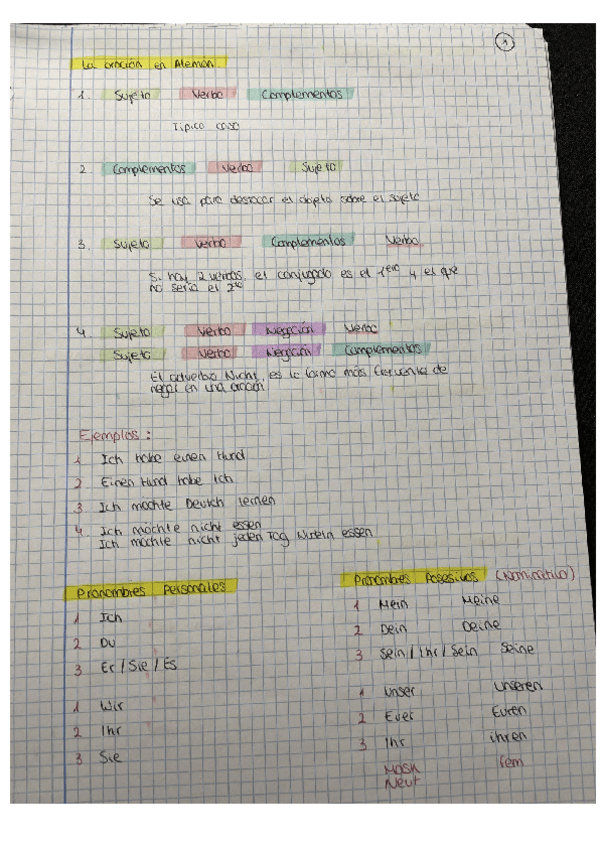 1
La oración en Alemán
1. Sujeto Verbo Complementos
Típico caso
2 Complementos Verbo Sujeto
Se usa para destacar el objeto sobre el sujeto
3. Sujeto Verbo Complementos Verbo
Si hay 2 verbos, el conjugado es el 1ero y el que
no sería el 2do
4. Sujeto Verbo Negación Verbo
Sujeto Verbo Negación Complementos
El adverbio Nicht, es la forma más de
negar en una oración
Ejemplos:
1 Ich habe einen Hund
2 Einen Hund habe ich
3 Ich möchte Deutsch lernen
4 Ich möchte nicht essen
Ich möchte nicht jeden Tag essen
Pronombres Personales
1 Ich
2 Du
3 Er / Sie / Es
1 Wir
2 Ihr
3 Sie
Pronombres Posesivos (Nominativo)
1 Mein Meine
2 Dein Deine
3 Sein / Ihr / Sein Seine
1 Unser Unseren
2 Euer Euren
3 Ihr ihren
Mask fem
Neut